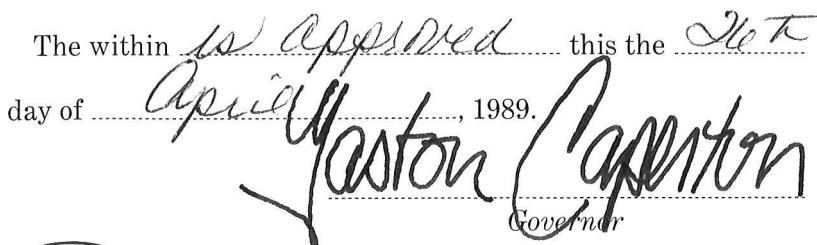 The within is approved this the 26th
day of April, 1989.
Gaston Caperton
Governor